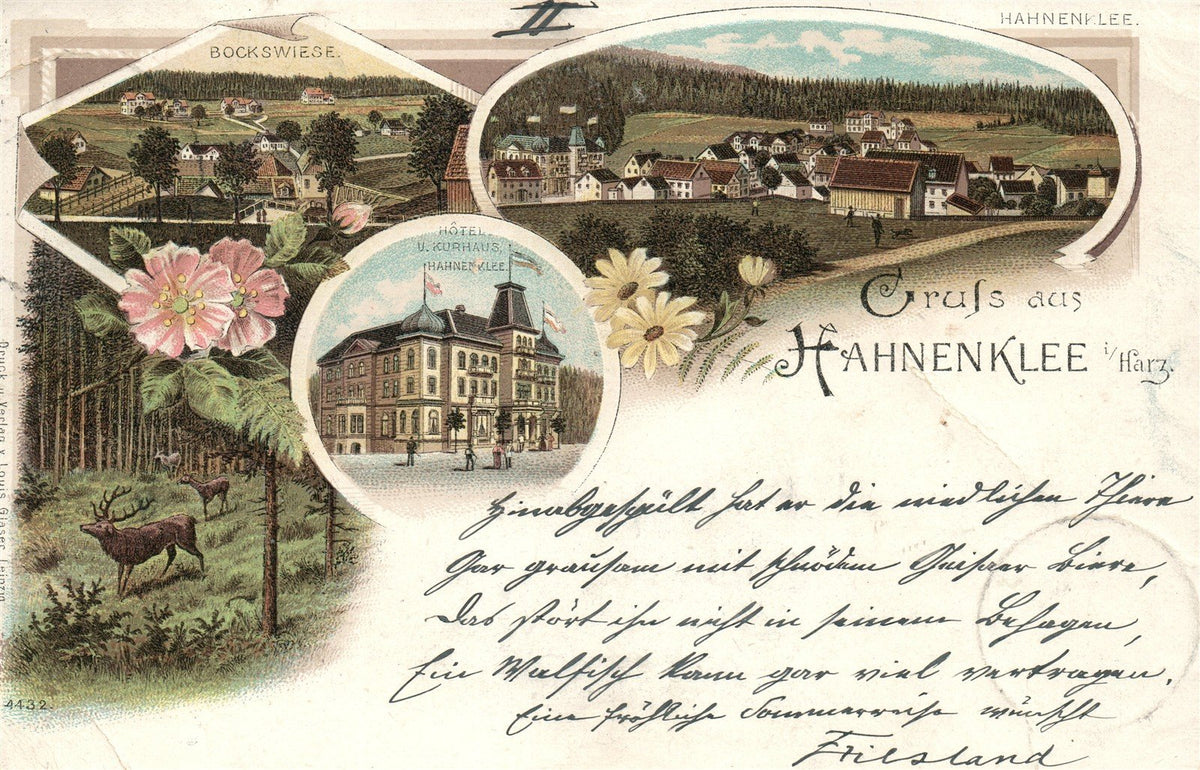 II
HAHNENKLEE.
BOCKSWIESE.
HÔTEL
U. KURHAUS,
HAHNENKLEE.
Gruss aus
HAHNENKLEE i/Harz.
Hinabgespült hat er die niedlichen Thiere
Gar grausam mit schnödem Biere,
Das stört ihn nicht in seinem Behagen,
Ein Walfisch kann gar viel vertragen.
Eine fröhliche Sommerreise wünscht
Friesland
Druck u. Verlag v. Louis Glaser, Leipzig
4432.